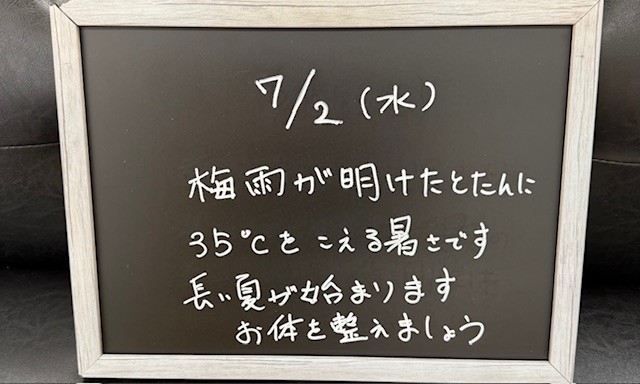 7/2（水）
梅雨が明けたとたんに
35℃をこえる暑さです
長い夏が始まります
お体を整えましょう